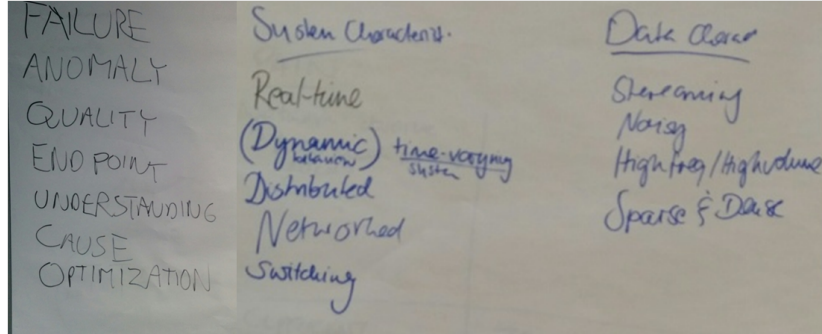 FAILURE
ANOMALY
QUALITY
ENDPOINT
UNDERSTANDING
CAUSE
OPTIMIZATION
System Characterist.
Real-time
(Dynamic) time-varying
behaviour system
Distributed
Networked
Switching
Data Charac
Streaming
Noisy
High freq/High volume
Sparse & Dense